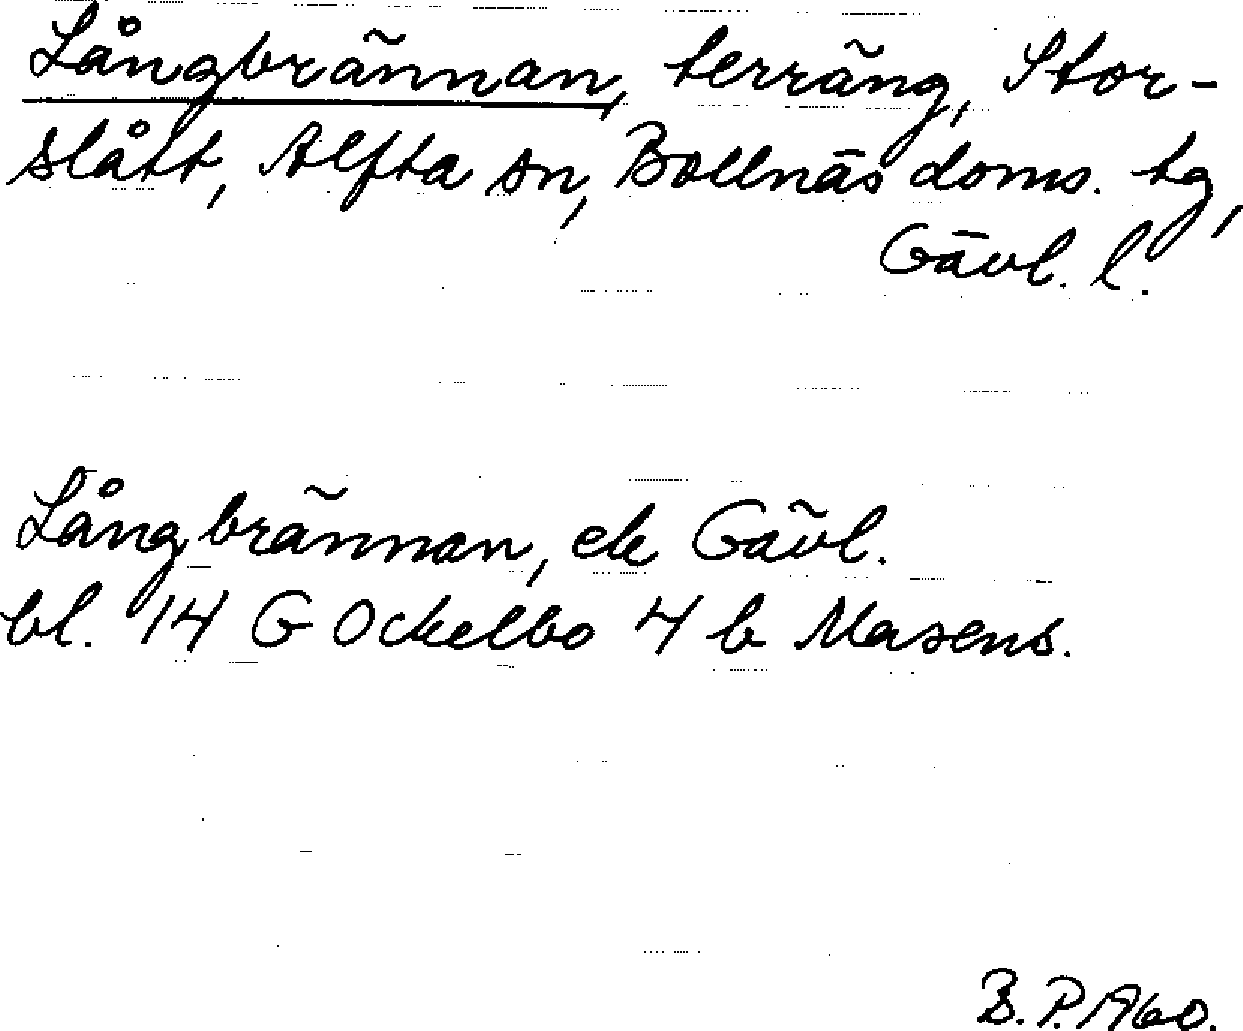 Långbrännan, terräng, Stor-
slått, Alfta sn, Bollnäs doms. tg,
Gävl. l.
Långbrännan, ek Gävl.
bl. 14 G Ockelbo 4 b Masens.
B. P. 1960.